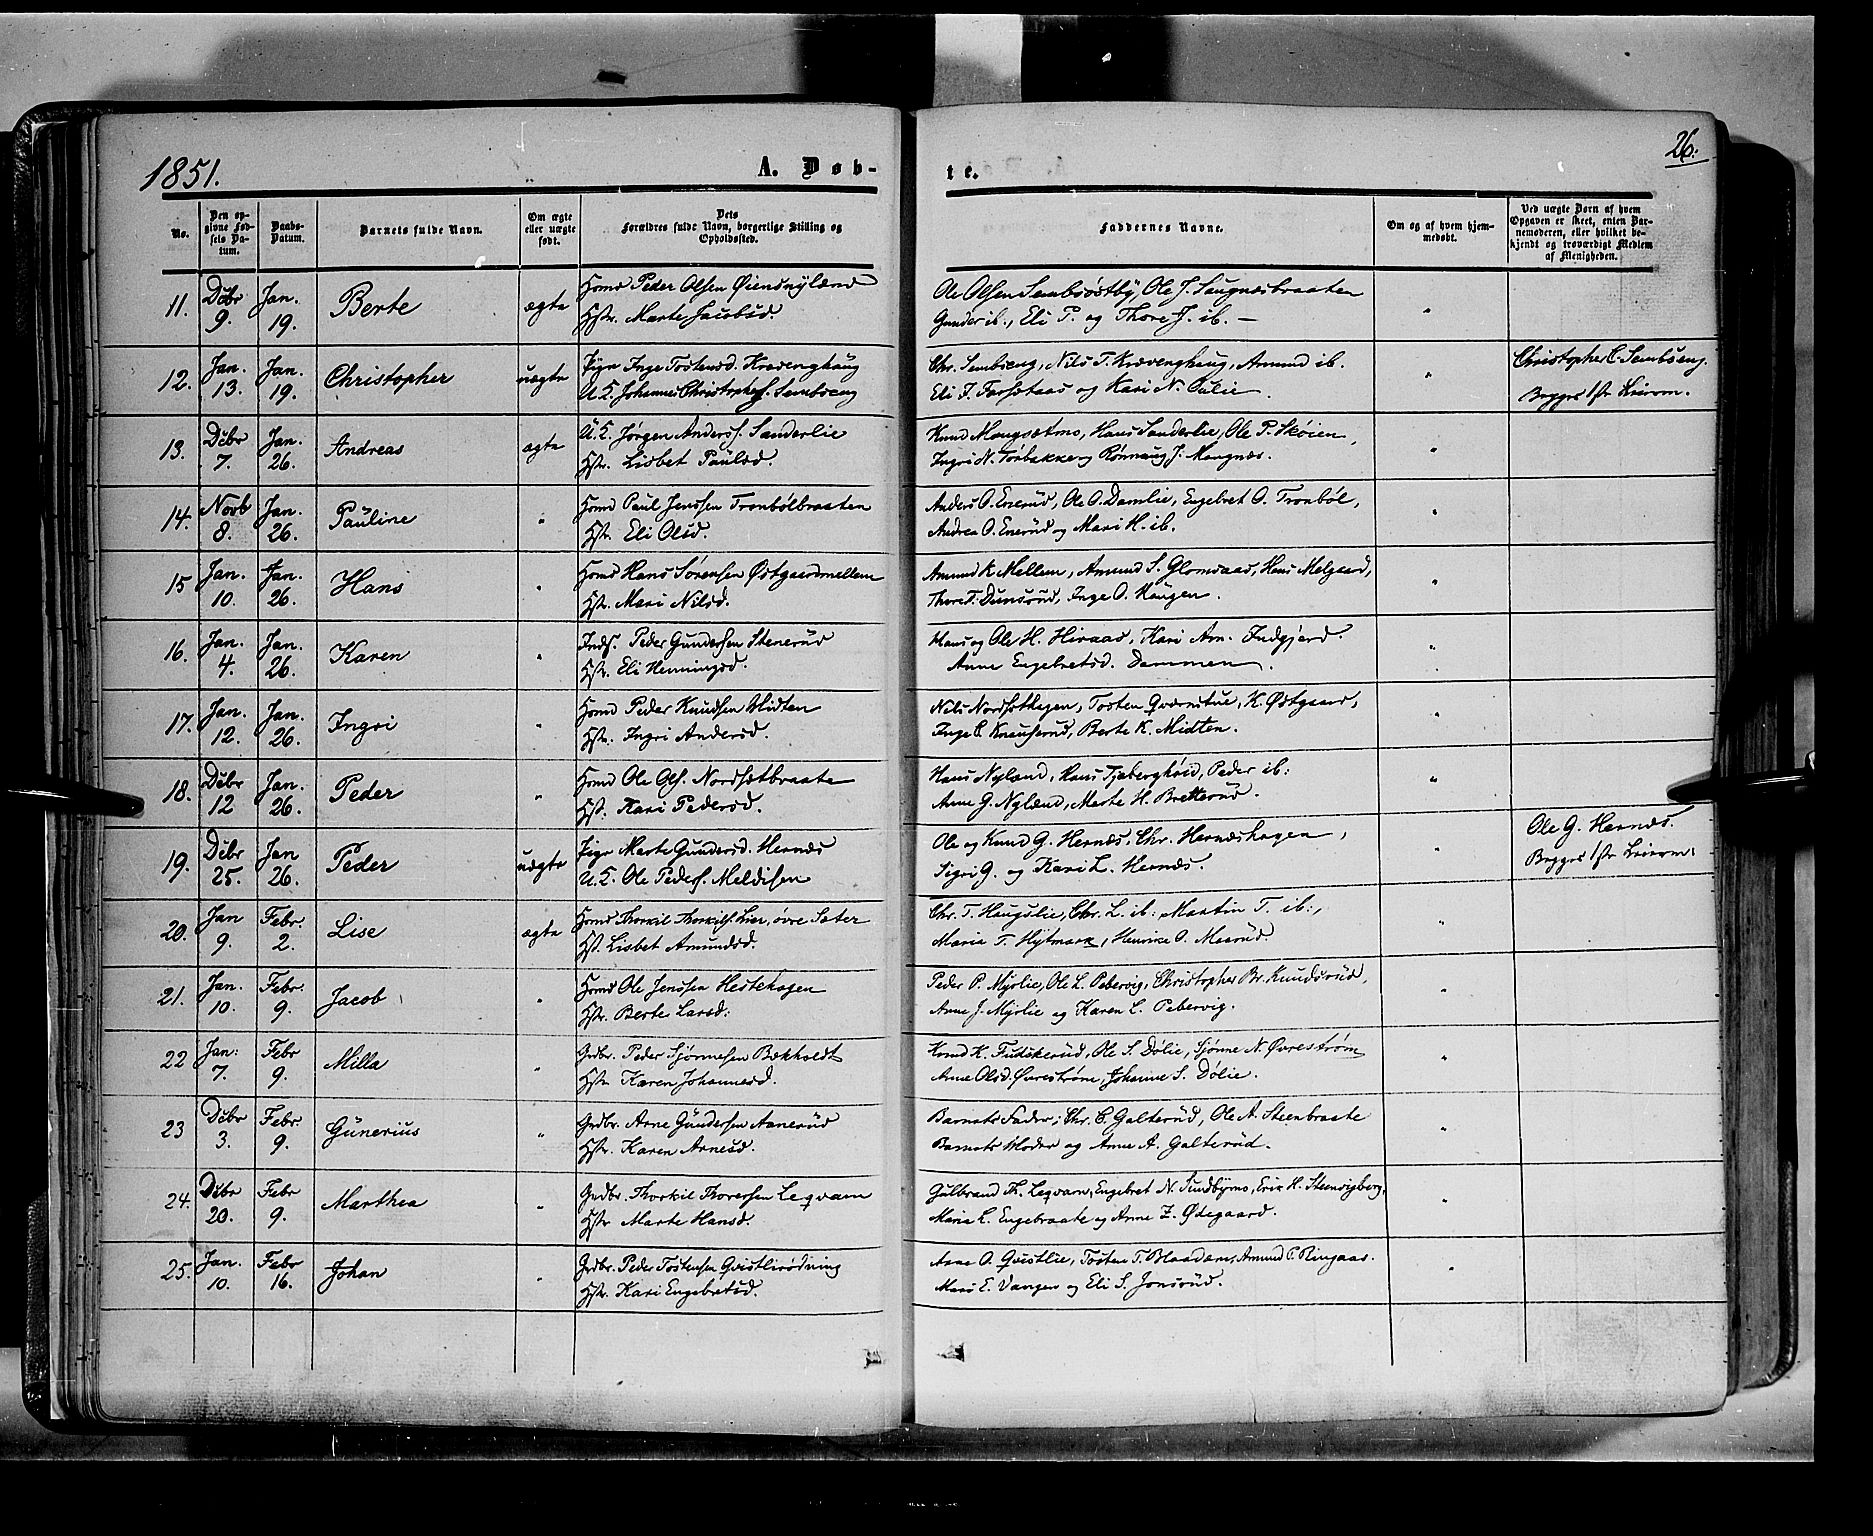 1851.
A. Døb-
te.
26.
No.
Den opgivne Fødsels Datum.
Daabs-Datum.
Barnets fulde Navn.
Om ægte eller uægte født.
Dets Forældres fulde Navn, borgerlige Stilling og Opholdssted.
Faddernes Navne.
Om og af hvem hjemmedøbt.
Ved uægte Børn af hvem Opgaven er skeet, enten Barnemoderen, eller hvilket bekjendt og troværdigt Medlem af Menigheden.
11. Debr 9. Jan. 19. Berte ægte Hsmd Peder Olsen Øiensnyland
Hstr. Marte Jacobsd.
Ole Olsen Sembsøstby, Ole J. Saugnæsbraaten
Gunder ib., Eli P. og Thore J. ib. —
12. Jan. 13. Jan. 19. Christopher uægte Pige Inge Tostensd. Kravenghaug
U.K. Johannes Christophers. Sembseng
Chr. Sembseng, Nils T. Kravenghaug, Amund ib.
Eli F. Farsetaas og Kari N. Julie.
Christopher C. Sembseng.
Bryggs 1ste Leierm.
13. Debr 7. Jan. 26. Andreas ægte U.K. Jørgen Anders. Sanderlie
Hstr. Lisbet Paulsd.
Knud Mangsætmo, Hans Sanderlie, Ole P. Skøien,
Ingri N. Torbakken og Rønnaug J. Mangnæs.
14. Novb 8. Jan. 26. Pauline " Hsmd Paul Jenssen Tronbølbraaten
Hstr. Eli Olsd.
Anders O. Enerud, Ole O. Damlie, Engebret O. Tronbøl,
Andrea O. Enerud og Mari H. ib.
15 Jan. 10. Jan. 26. Hans " Hsmd Hans Sørensen Østgaardmellem
Hstr. Mari Nilsd.
Amund K. Mellem, Amund S. Glomsaas, Hans Melgaard,
Thore T. Dunsrud, Inge O. Haugen.
16. Jan. 4. Jan. 26. Karen " Inds. Peder Gundersen Stenerud
Hstr. Eli Henningsd.
Hans og Ole H. Hiraas, Kari Am. Indgjerd.
Anne Engebretsd. Dammen.
17. Jan. 12. Jan. 26. Ingri " Hsmd Peder Knudsen Midten
Hstr. Ingri Andersd.
Nils Nordsethagen, Tosten Qvernstue, K. Østgaard,
Inge C. Knauserud, Berte K. Midten.
18. Debr 12 Jan. 26. Peder " Hsmd Ole Ols. Nordsætbraate
Hst. Kari Pedersd.
Hans Nyland, Hans Tjaberghøid, Peder ib:
Anne G. Nyland, Marte H. Bretterud.
19. Debr 25. Jan 26. Peder uægte Pige Marte Gundersd. Hernæs
U.K. Ole Peders. Meldisen
Ole og Knud G. Hernæs, Chr. Hernæshagen,
Sigri G. og Kari L. Hernæs.
Ole G. Hernæs.
Bryggs 1ste Leierm:
20. Jan 9. Febr. 2. Lise ægte Hsmd Thorkil Thorkils. Lier, øvre Sæter
Hst. Lisbet Amundsd.
Chr. T. Haugslie, Chr. L. ib: Martin T. ib:,
Maria T. Hytmark, Henrike O. Maarud.
21. Jan. 10. Febr. 9. Jacob " Hsmd Ole Jenssen Hestehagen
Hstr. Berte Larsd:
Peder P. Myrlie, Ole L. Pebervig, Christopher Br. Knudsrud,
Anne J. Myrlie og Karen L. Pebervig.
22 Jan: 7. Febr 9. Milla " Grdbr. Peder Sjønnesen Bækholdt
Hstr. Karen Johannesd.
Knud K. Fulskerud, Ole S. Dølie, Sjønne N. Øvrestrøm
Anne Olsd. Øvrestrøm, Johanne S. Dølie.
23 Debr 3. Febr 9. Gunerius " Grdbr. Arne Gundersen Aanerud
Hstr. Karen Arnesd.
Barnets Fader; Chr. C. Galterud, Ole A. Steenbraate
Barnets Moder og Anne A. Galterud.
24. Debr 20. Febr 9. Marthea " Grdbr. Thorkil Thoresen Leqvam
Hstr Marte Hansd.
Gulbrand Th. Leqvam, Engebret N. Sundbymo, Erik H. Steenvigberg,
Maria L. Engebraate og Anne Z. Ødegaard.
25. Jan. 10. Febr 16. Johan " Grdbr. Peder Tostensen Qvistlirødning
Hstr. Kari Engebretsd.
Arne O. Qvistlie, Tosten T. Blaadam, Amund P. Ringaas.
Mari E. Vangen og Eli S. Jonsrud.